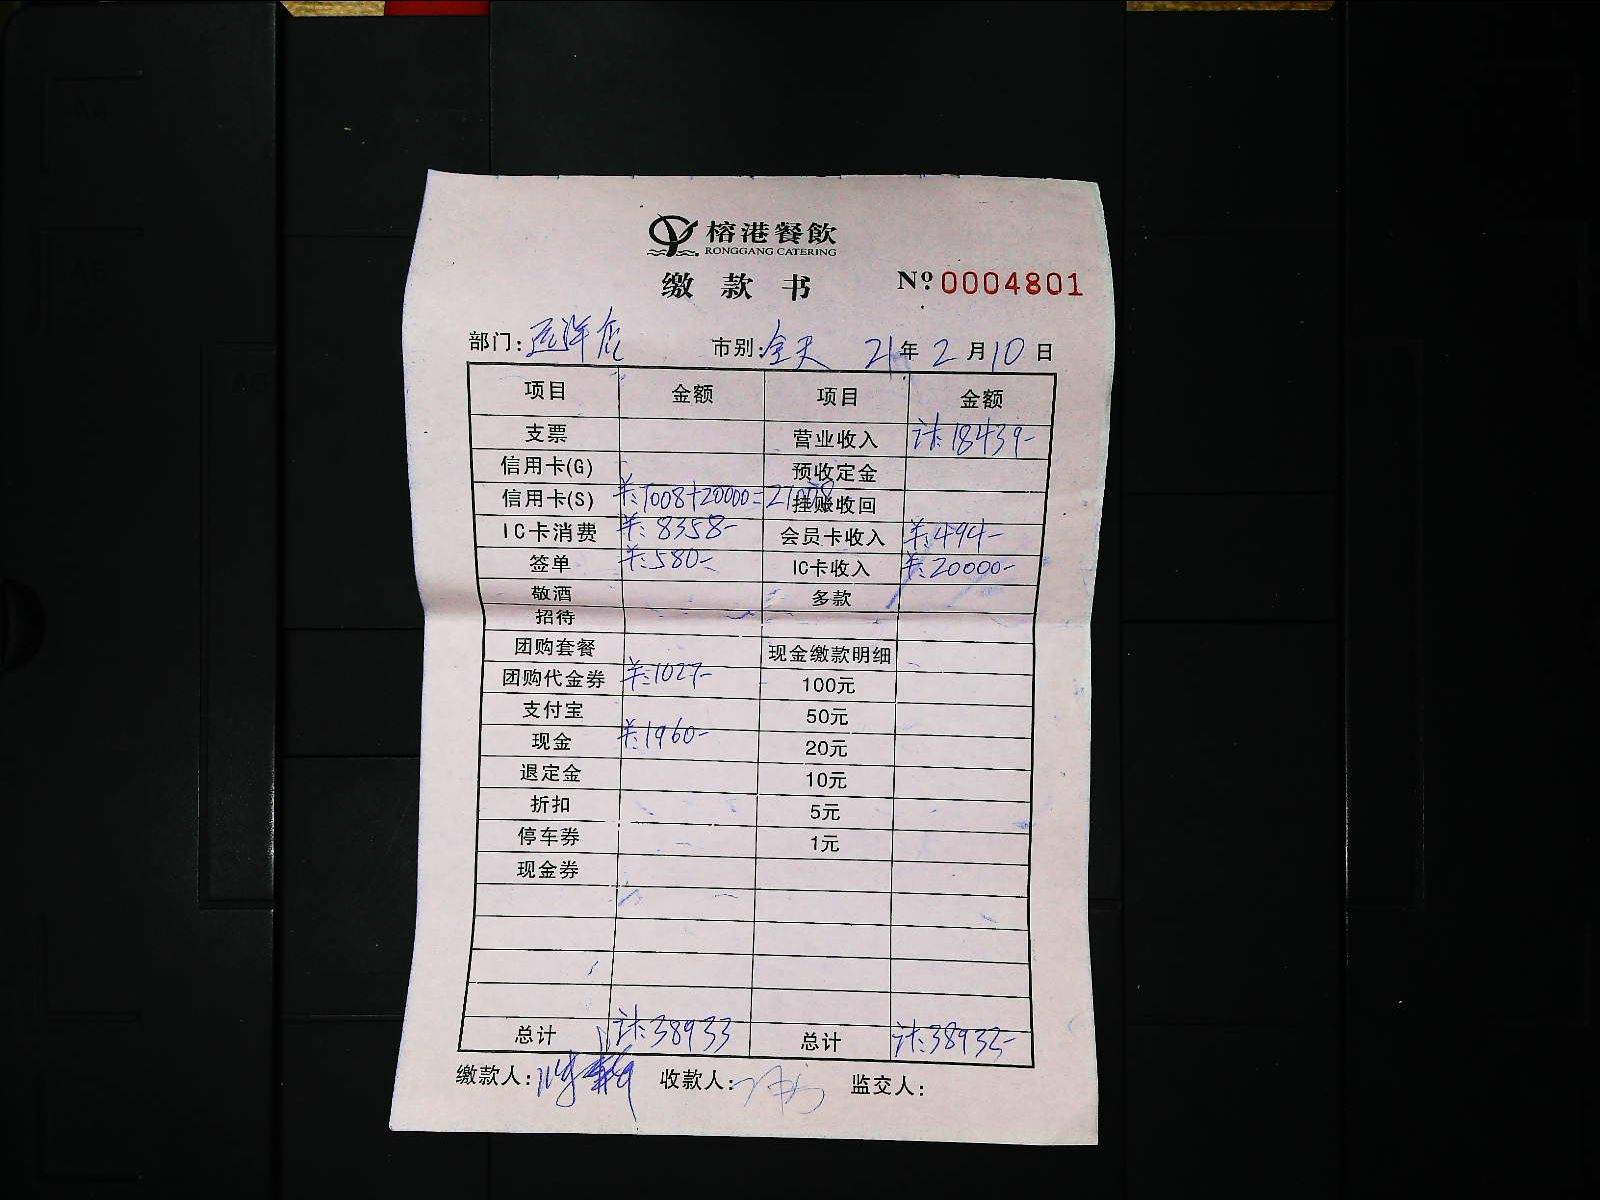 榕港餐飲
RONGGANG CATERING
缴款书 Nº 0004801
部门: 远洋店 市别: 全天 21年 2月 10日
项目 金额 项目 金额
支票 营业收入 计: 18439-
信用卡(G) 预收定金
信用卡(S) ¥:7008+20000=27008 挂账收回
IC卡消费 ¥:8358- 会员卡收入 ¥:494-
签单 ¥:580- IC卡收入 ¥:20000-
敬酒 多款
招待
团购套餐 现金缴款明细
团购代金券 ¥:1027- 100元
支付宝 50元
现金 ¥:1960- 20元
退定金 10元
折扣 5元
停车券 1元
现金券
总计 计:38933 总计 计:38933-
缴款人: 收款人: 监交人: